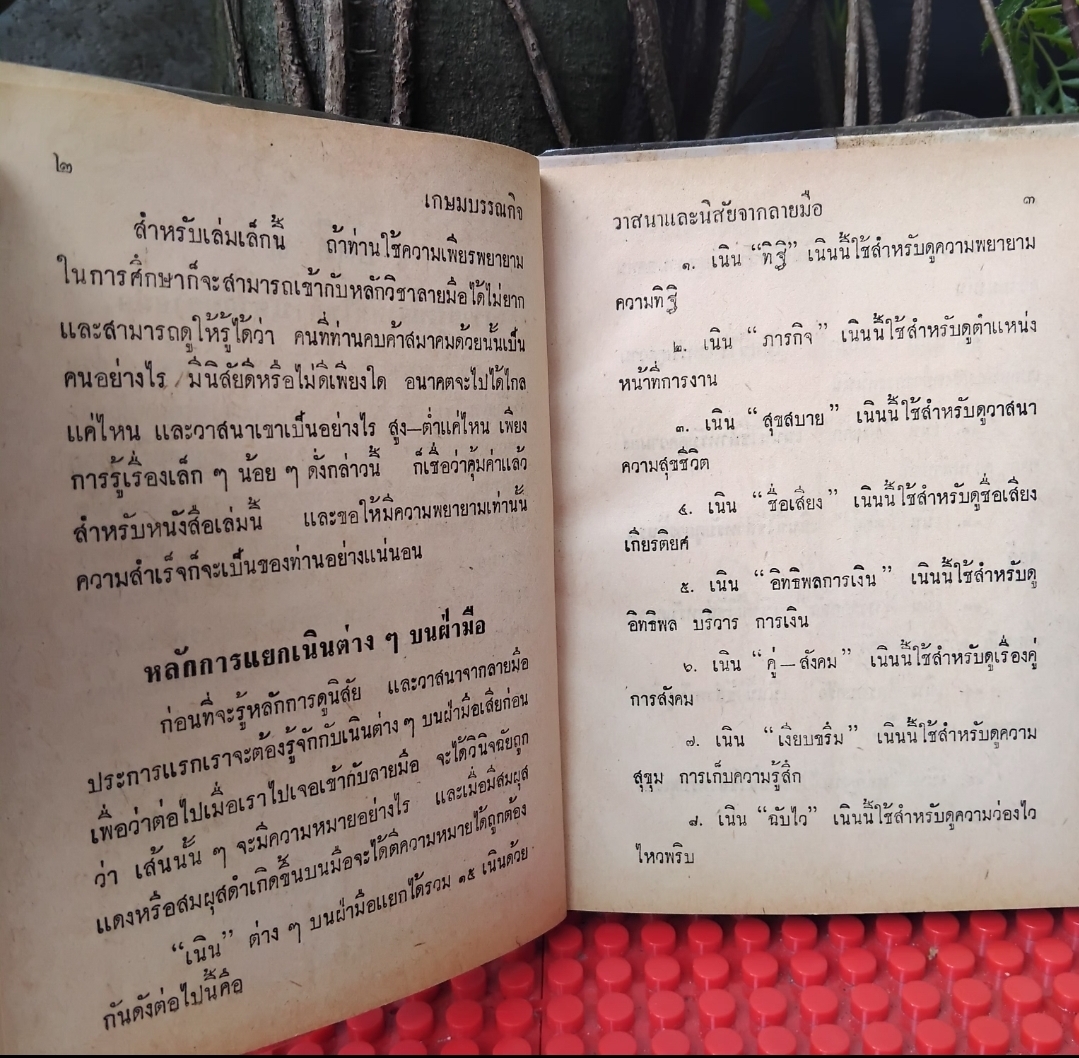 ๒
เกษมบรรณกิจ
สำหรับเล่มเล็กนี้ ถ้าท่านใช้ความเพียรพยายาม
ในการศึกษาก็จะสามารถเข้ากับหลักวิชาลายมือได้ไม่ยาก
และสามารถดูให้รู้ได้ว่า คนที่ท่านคบค้าสมาคมด้วยนั้นเป็น
คนอย่างไร มีนิสัยดีหรือไม่ดีเพียงใด อนาคตจะไปได้ไกล
แค่ไหน และวาสนาเขาเป็นอย่างไร สูง—ต่ำแค่ไหน เพียง
การรู้เรื่องเล็ก ๆ น้อย ๆ ดั่งกล่าวนี้ ก็เชื่อว่าคุ้มค่าแล้ว
สำหรับหนังสือเล่มนี้ และขอให้มีความพยายามเท่านั้น
ความสำเร็จก็จะเป็นของท่านอย่างแน่นอน
หลักการแยกเนินต่าง ๆ บนฝ่ามือ
ก่อนที่จะรู้หลักการดูนิสัย และวาสนาจากลายมือ
ประการแรกเราจะต้องรู้จักกับเนินต่าง ๆ บนฝ่ามือเสียก่อน
เพื่อว่าต่อไปเมื่อเราไปเจอเข้ากับลายมือ จะได้วินิจฉัยถูก
ว่า เส้นนั้น ๆ จะมีความหมายอย่างไร และเมื่อมีสมผุส
แดงหรือสมผุสดำเกิดขึ้นบนมือจะได้ตีความหมายได้ถูกต้อง
“เนิน” ต่าง ๆ บนฝ่ามือแยกได้รวม ๑๕ เนินด้วย
กันดังต่อไปนี้คือ
วาสนาและนิสัยจากลายมือ
๓
๑. เนิน “ทิฐิ” เนินนี้ใช้สำหรับดูความพยายาม
ความทิฐิ
๒. เนิน “ภารกิจ” เนินนี้ใช้สำหรับดูตำแหน่ง
หน้าที่การงาน
๓. เนิน “สุขสบาย” เนินนี้ใช้สำหรับดูวาสนา
ความสุขชีวิต
๔. เนิน “ชื่อเสียง” เนินนี้ใช้สำหรับดูชื่อเสียง
เกียรติยศ
๕. เนิน “อิทธิพลการเงิน” เนินนี้ใช้สำหรับดู
อิทธิพล บริวาร การเงิน
๖. เนิน “คู่—สังคม” เนินนี้ใช้สำหรับดูเรื่องคู่
การสังคม
๗. เนิน “เงียบขรึม” เนินนี้ใช้สำหรับดูความ
สุขุม การเก็บความรู้สึก
๘. เนิน “ฉับไว” เนินนี้ใช้สำหรับดูความว่องไว
ไหวพริบ